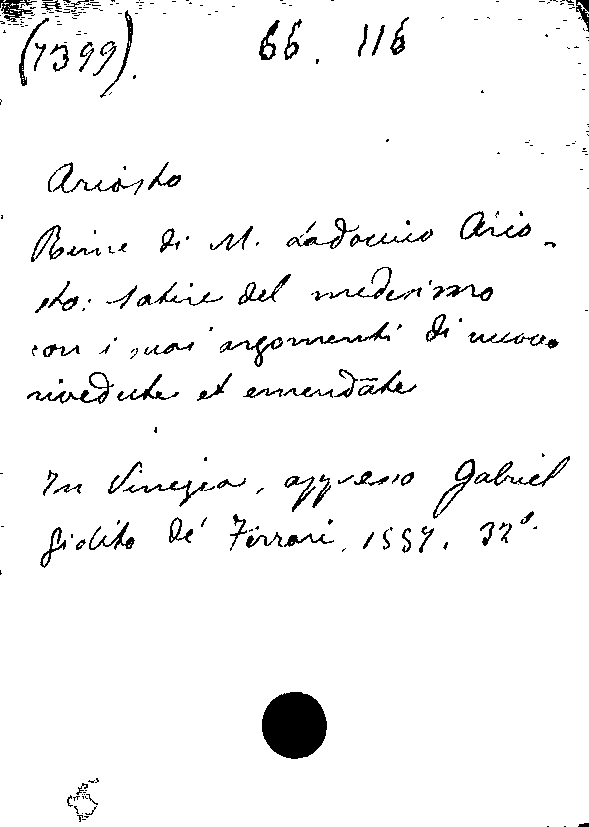 (7399). 66. 116
Ariosto
Rime di M. Lodovico Ario-
sto: satire del medesimo
con i suoi argomenti di nuovo
rivedute et emendate
In Vinegia, appresso Gabriel
Giolito de' Ferrari, 1557. 32º.